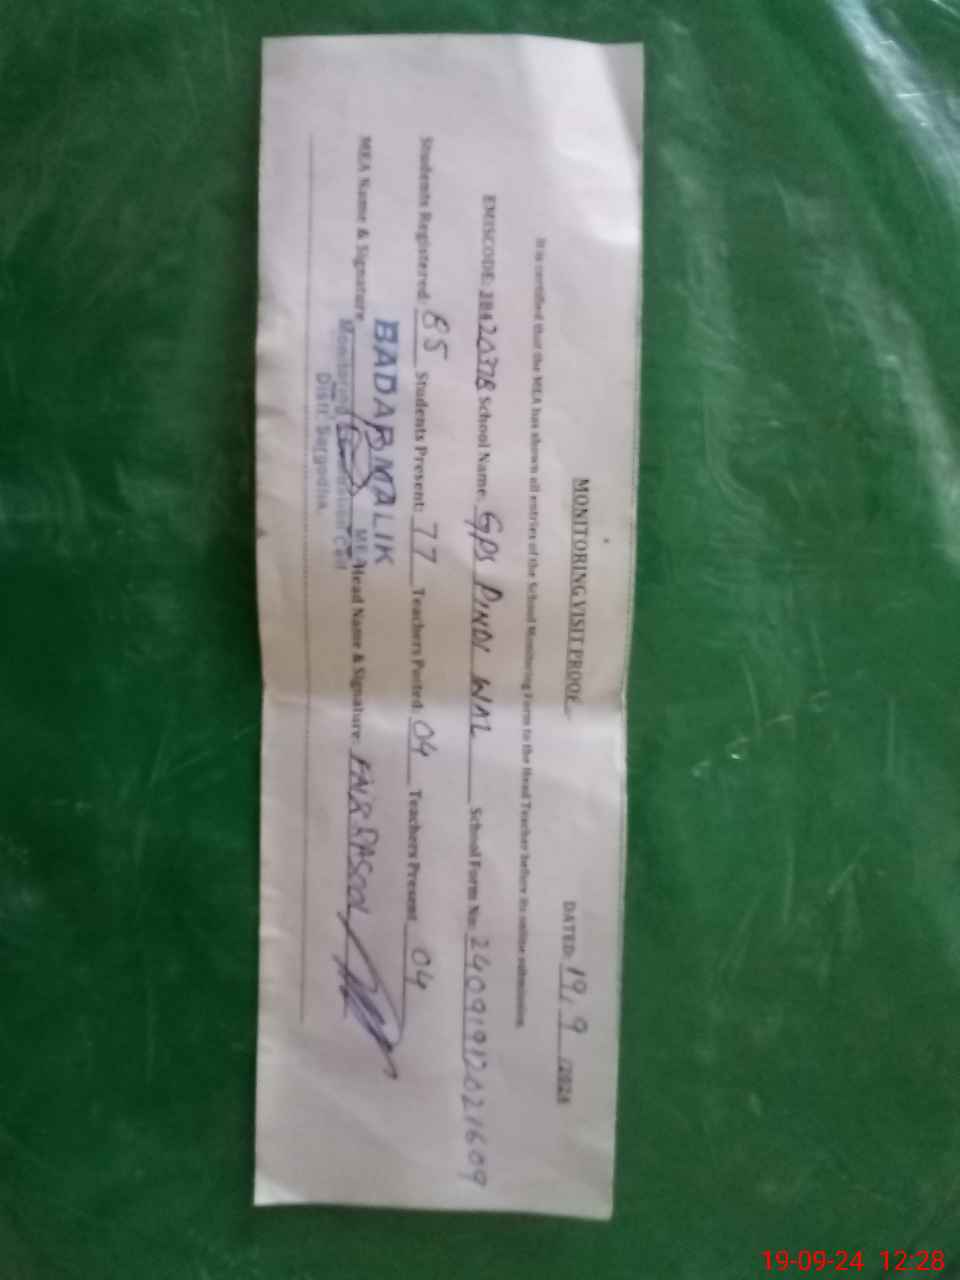 MONITORING VISIT PROOF
DATED: 19, 9 /2024
It is certified that the MEA has shown all entries of the School Monitoring Form to the Head Teacher before its online submission.
EMISCODE: 38420378 School Name: GPS PINDI WAL School Form No: 24091912021609
Students Registered: 85 Students Present: 77 Teachers Posted: 04 Teachers Present 04
BADAR MALIK
MEA Name & Signature MEA Head Name & Signature:
Monitoring Cell
Distt. Sargodha.
19-09-24 12:28